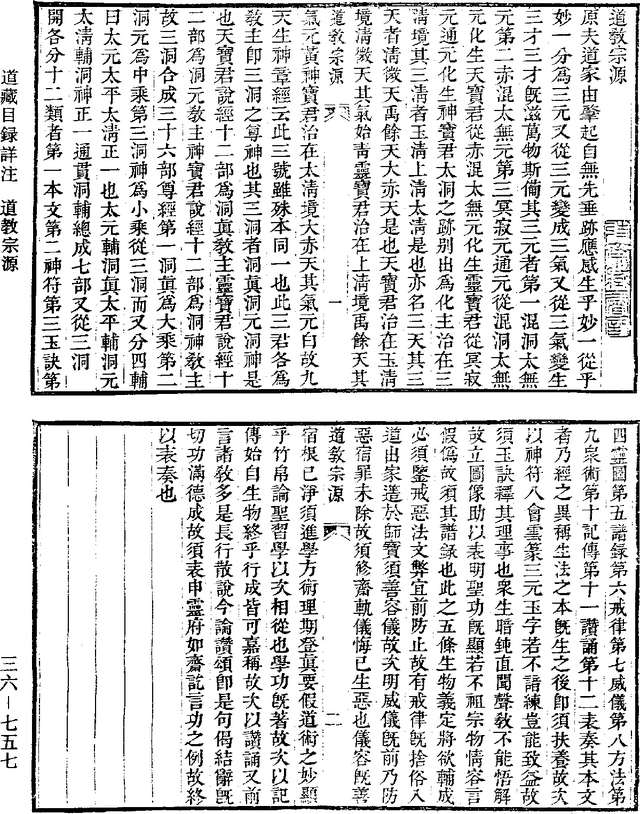 道教宗源
原夫道家由肇起自無先垂跡應感生乎妙一從乎
妙一分爲三元又從三元變成三氣又從三氣變生
三才三才既滋萬物斯備其三元者第一混洞太無
元第二赤混太無元第三冥寂元通元從混洞太無
元化生天寶君從赤混太無元化生靈寶君從冥寂
元通元化生神寶君太洞之跡别出爲化主治在三
清境其三清者玉清上清太清是也亦名三天其三
天者清微天禹餘天大赤天是也天寶君治在玉清
境清微天其氣始青靈寶君治在上清境禹餘天其
道教宗源
一
氣元黄神寶君治在太清境大赤天其氣元白故九
天生神章經云此三號雖殊本同一也此三君各爲
教主卽三洞之尊神也其三洞者洞眞洞元洞神是
也天寶君說經十二部爲洞眞教主靈寶君說經十
二部爲洞元教主神寶君說經十二部爲洞神教主
故三洞合成三十六部尊經第一洞眞爲大乘第二
洞元爲中乘第三洞神爲小乘從三洞而又分四輔
曰太元太平太清正一也太元輔洞眞太平輔洞元
太清輔洞神正一通貫洞輔總成七部又從三洞
開各分十二類者第一本文第二神符第三玉訣第
道藏目録詳注 道教宗源
四靈圖第五譜録第六戒律第七威儀第八方法第
九衆術第十記傳第十一讚誦第十二表奏其本文
者乃經之異稱生法之本既生之後卽須扶養故次
以神符八會雲篆三元玉字若不諳練豈能致益故
須玉訣釋其理事也衆生暗鈍直聞聲教不能悟解
故立圖像助以表明聖功既顯若不祖宗物情容言
假僞故須其譜録也此之五條生物義定將欲輔成
必須鑒戒惡法文弊宜前防止故有戒律既捨俗入
道出家簉於師寶須善容儀故次明威儀既前乃防
惡宿罪未除故須修齋軌儀悔已生惡也儀容既善
道教宗源
二
宿根已淨須進學方術理期登眞要假道術之妙顯
乎竹帛論聖習學以次相從也學功既著故次以記
傳始自生物終乎行成皆可嘉稱故次以讚誦又前
言諸教多是長行散說今論讚頌卽是句偈結辭既
切功滿德成故須表申靈府如齋訖言功之例故終
以表奏也
三六－七五七